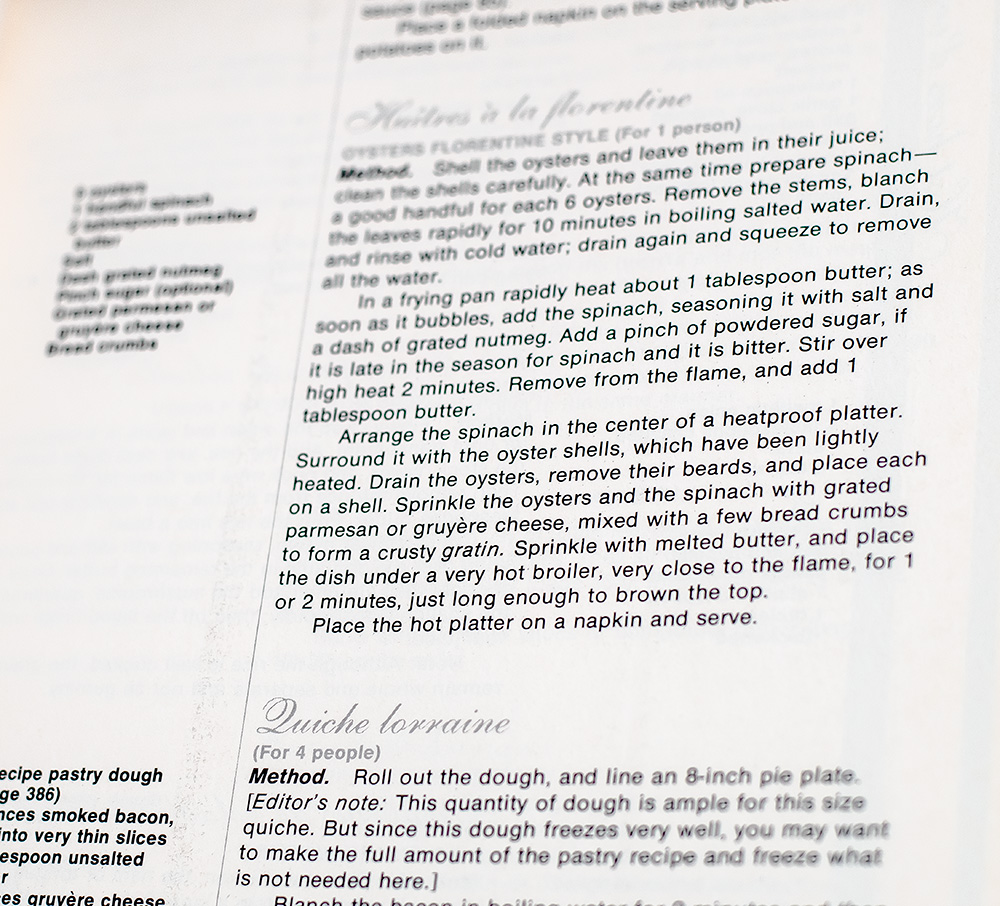 sauce (page 85).
Place a folded napkin on the serving
potatoes on it.
Huîtres à la florentine
OYSTERS FLORENTINE STYLE (For 1 person)
Method. Shell the oysters and leave them in their juice;
clean the shells carefully. At the same time prepare spinach—
a good handful for each 6 oysters. Remove the stems, blanch
the leaves rapidly for 10 minutes in boiling salted water. Drain,
and rinse with cold water; drain again and squeeze to remove
all the water.
In a frying pan rapidly heat about 1 tablespoon butter; as
soon as it bubbles, add the spinach, seasoning it with salt and
a dash of grated nutmeg. Add a pinch of powdered sugar, if
it is late in the season for spinach and it is bitter. Stir over
high heat 2 minutes. Remove from the flame, and add 1
tablespoon butter.
Arrange the spinach in the center of a heatproof platter.
Surround it with the oyster shells, which have been lightly
heated. Drain the oysters, remove their beards, and place each
on a shell. Sprinkle the oysters and the spinach with grated
parmesan or gruyère cheese, mixed with a few bread crumbs
to form a crusty gratin. Sprinkle with melted butter, and place
the dish under a very hot broiler, very close to the flame, for 1
or 2 minutes, just long enough to brown the top.
Place the hot platter on a napkin and serve.
oysters
handful spinach
tablespoons unsalted
butter
Salt
Dash grated nutmeg
Pinch sugar (optional)
Grated parmesan or
gruyère cheese
Bread crumbs
Quiche lorraine
(For 4 people)
Method. Roll out the dough, and line an 8-inch pie plate.
[Editor's note: This quantity of dough is ample for this size
quiche. But since this dough freezes very well, you may want
to make the full amount of the pastry recipe and freeze what
is not needed here.]
Blanch the bacon in boiling water for
ecipe pastry dough
ge 386)
nces smoked bacon,
into very thin slices
espoon unsalted
r
es gruyère cheese